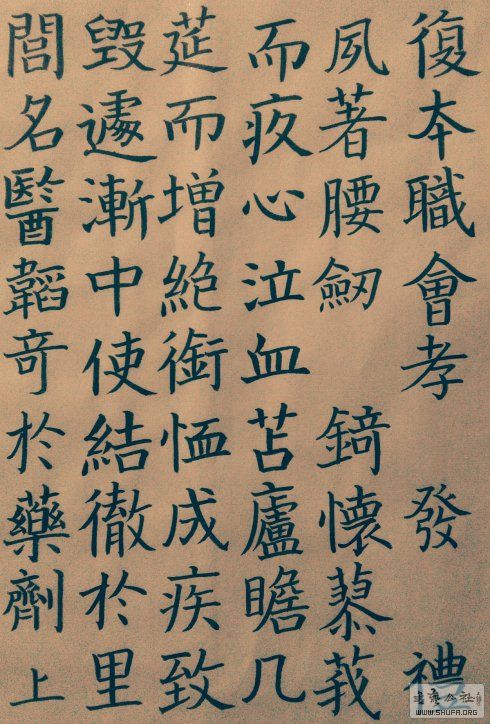 復本職會孝 發 禮
夙著腰劒 錡懷蓼莪
而疚心泣血苫廬瞻几
莚而增絶銜恤成疾致
毀遽漸中使結徹於里
閭名醫韜奇於藥劑上
书艺公社
WWW.SHUFA.ORG